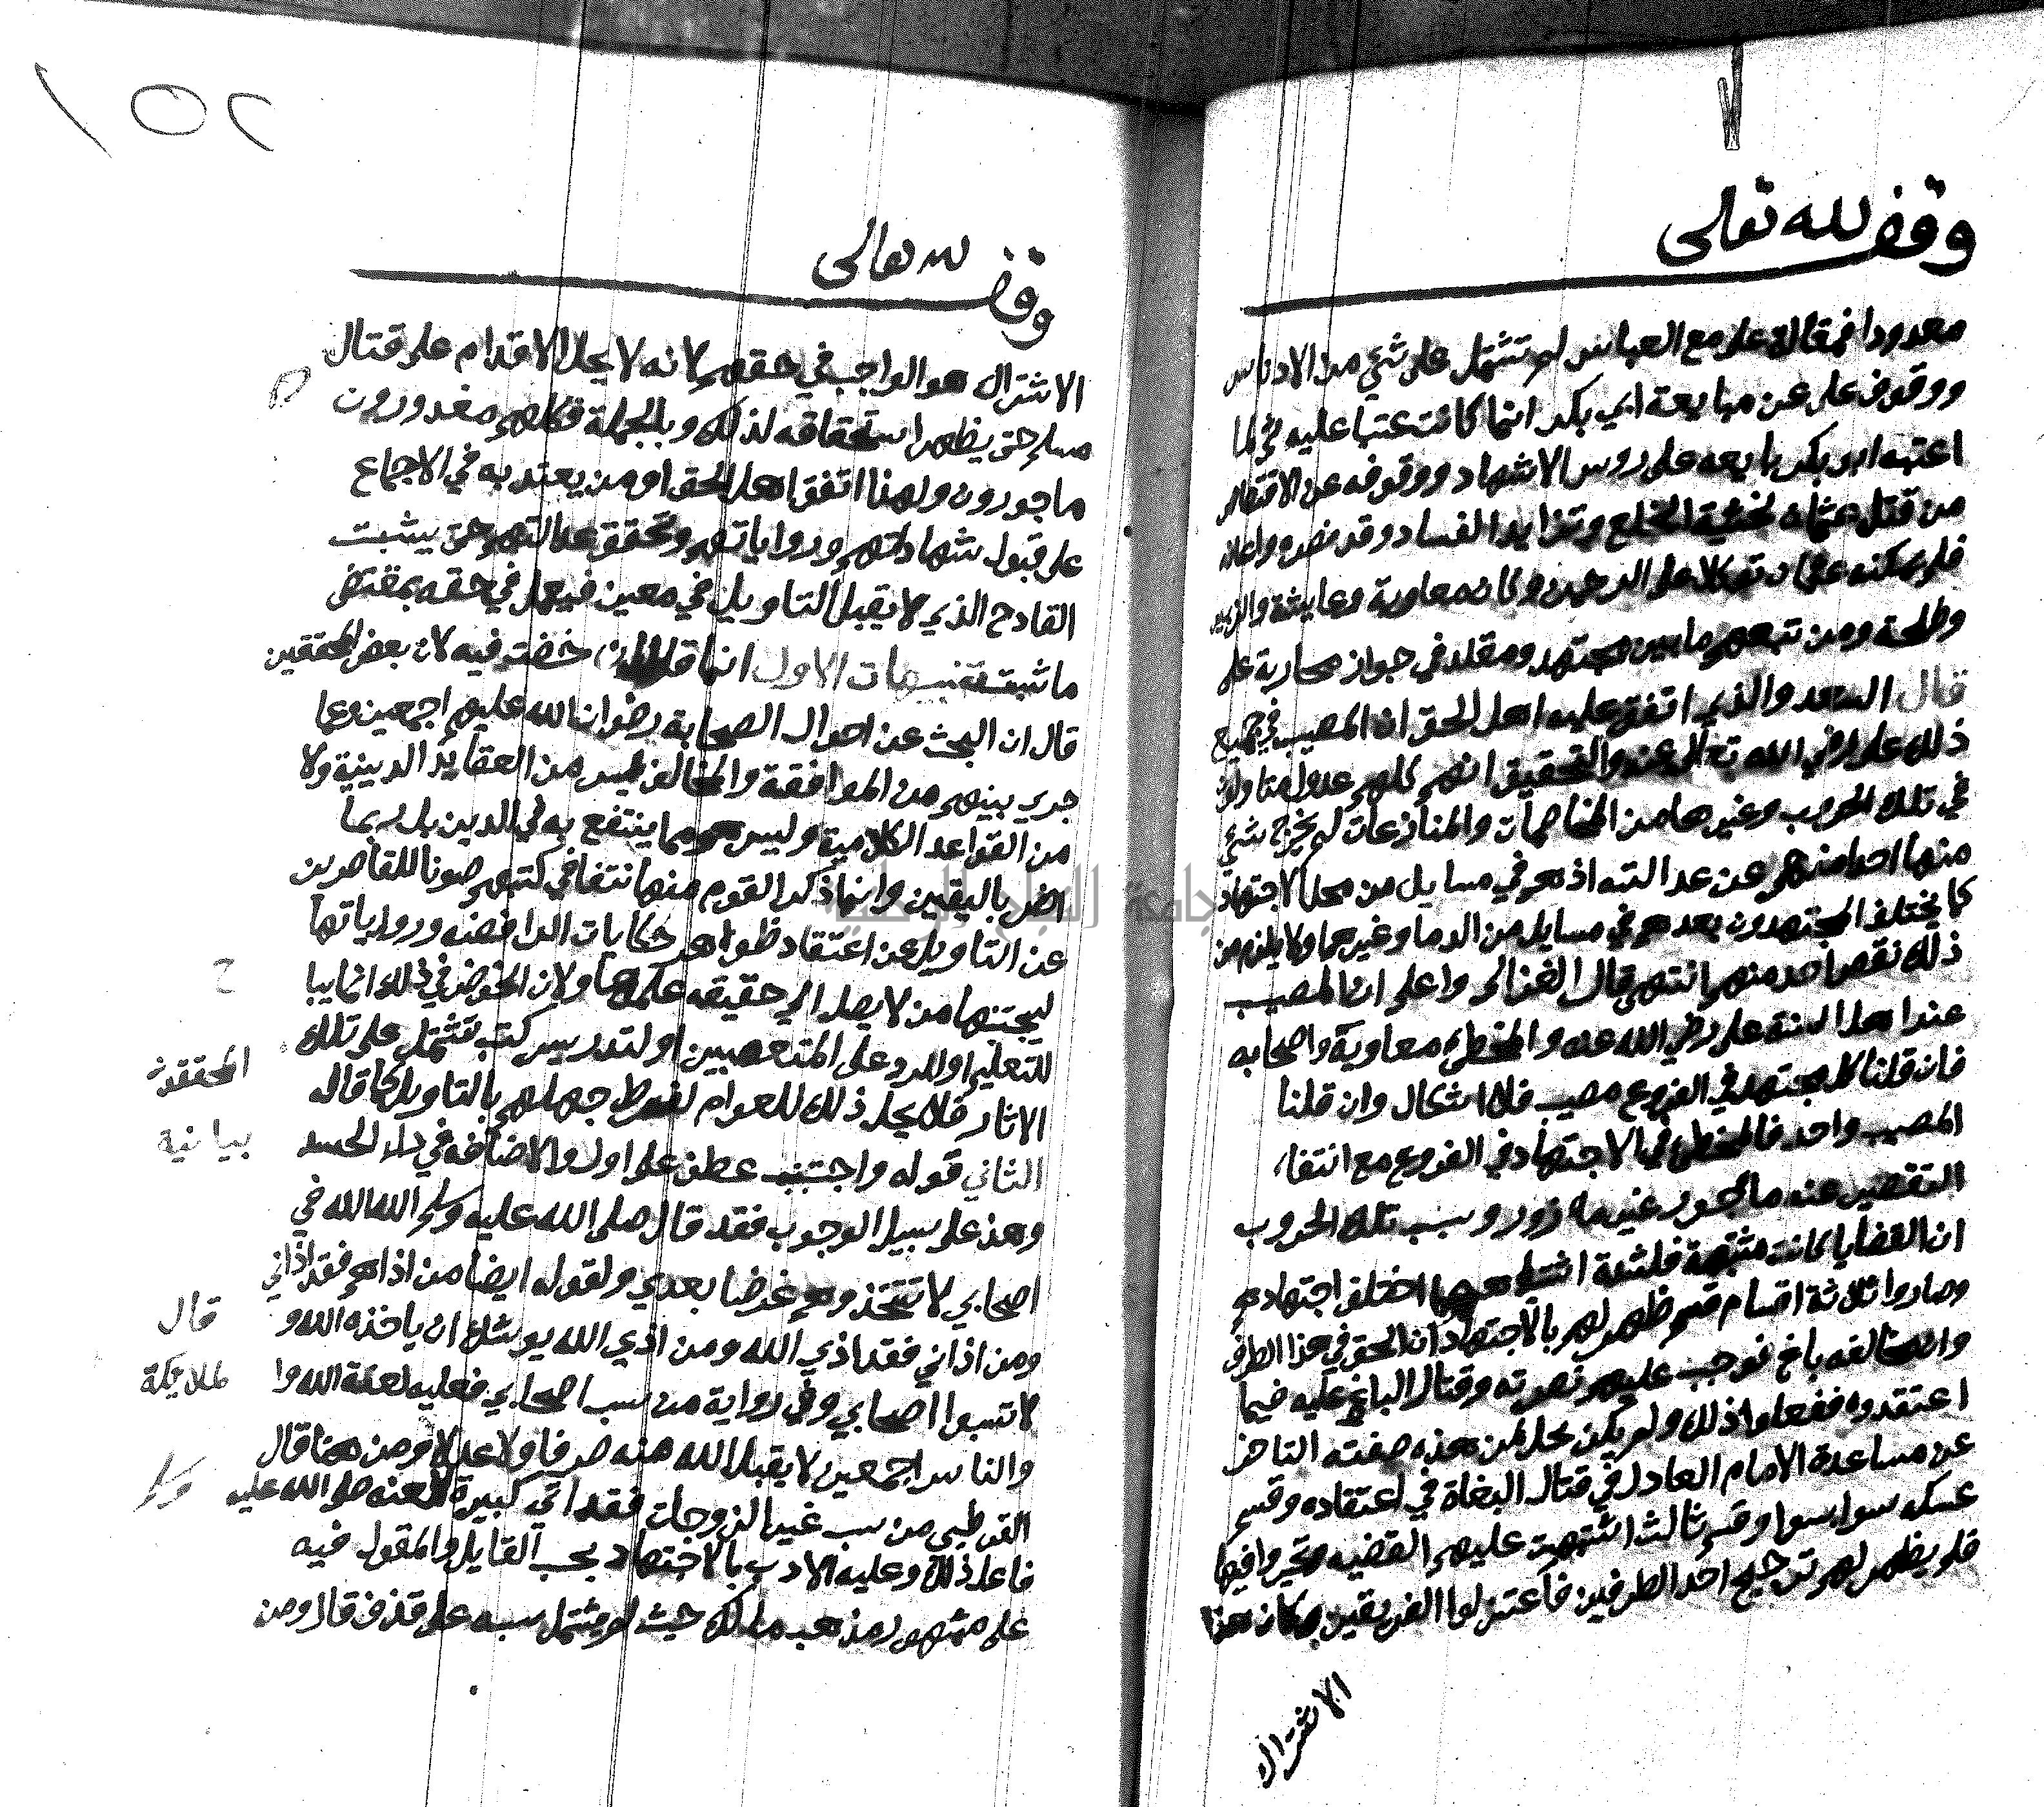 وقف لله تعالى
معدودا فمقالة على مع العباس لم تشتمل على شيء من الادناس
ووقوف على عن مبايعة ابي بكر انما كانت عتبا عليه ثم لما
اعتبه ابو بكر بايعه على روس الاشهاد ووقوفه عن الاقتصاص
من قتل عثمان لخشية الخلع وتزايد الفساد وقد نصره واعانه
فلم يمكنه عثمان توكلا على الرحمن وكان معاوية وعايشة والزبير
وطلحة ومن تبعهم ما بين مجتهد ومقلد في جواز محاربة على
قال السعد والذي اتفق عليه اهل الحق ان المصيب في جميع
ذلك على رضي الله تعالى عنه والتحقيق انهم كلهم عدول متاولون
في تلك الحروب وغيرها من المخاصمات والمنازعات لم يخرج شئ
منها احدا منهم عن عدالته اذ هم في مسايل من محل الاجتهاد
كما يختلف المجتهدون بعدهم في مسايل من الدما وغيرها ولا يلزم من
ذلك نقص احد منهم انتهى قال الغزالى واعلم ان المصيب
عند اهل السنة على رضي الله عنه والمخطئ معاوية واصحابه
فان قلنا كل مجتهد في الفروع مصيب فلا اشكال وان قلنا
المصيب واحد فالمخطئ في الاجتهاد في الفروع مع انتفاء
التقصير عنه ماجور غير مازور وسبب تلك الحروب
ان القضايا كانت مشتبهة فلشدة اشتباهها اختلف اجتهادهم
وصاروا ثلاثة اقسام قسم ظهر لهم بالاجتهاد ان الحق في هذا الطرف
وان مخالفه باغ فوجب عليهم نصرته وقتال الباغي عليه فيما
اعتقدوه ففعلوا ذلك ولم يكن يحل لمن هذه صفته التاخر
عن مساعدة الامام العادل في قتال البغاة في اعتقاده وقسم
عكسه سوا بسوا وقسم ثالث اشتبهت عليهم القضيه فتحيروا فيها
فلم يظهر لهم ترجيح احد الطرفين فاعتزلوا الفريقين وكان هذا
الاعتزال
١٥٢
وقف لله تعالى
الاعتزال هو الواجب في حقهم لانه لا يحل الاقدام على قتال
مسلم حتى يظهر استحقاقه لذلك وبالجملة فكلهم معذورون
ماجورون ولهذا اتفق اهل الحق او من يعتد به في الاجماع
على قبول شهادتهم ورواياتهم وتحقق عدالتهم حتى يثبت
القادح الذي لا يقبل التاويل في معين فيعمل في حقه بمقتضى
ما ثبت تنبيهات الاول انما قال ان خضت فيه لان بعض المحققين
قال ان البحث عن احوال الصحابة رضوان الله عليهم اجمعين وعما
جري بينهم من الموافقة والمخالفة ليس من العقايد الدينية ولا
من القواعد الكلامية وليس هو مما ينتفع به في الدين بل ربما
اضر باليقين وانما ذكر القوم منها نتفا في كتبهم صونا للقاصرين
عن التاويل عن اعتقاد ظواهر حكايات الرافضه ورواياتها
ليجتنبها من لا يصل الي حقيقه علمها ولان الخوض في ذلك انما يباح
للتعليم او للرد على المتعصبين او لتدريس كتب تشتمل على تلك
الاثار فلا يحل ذلك للعوام لفرط جهلهم بالتاويل كما قاله المحققون
الثاني قوله واجتنب عطف على اول والاضافه في داء الحسد بيانية
وهذ على سبيل الوجوب فقد قال صلى الله عليه وسلم الله الله في
اصحابي لا تتخذوهم غرضا بعدي ولقوله ايضا من اذاهم فقد اذاني
ومن اذاني فقد اذي الله ومن اذي الله يوشك ان ياخذه الله وقال
لا تسبوا اصحابي وفي رواية من سب اصحابي فعليه لعنة الله والملايكة
والناس اجمعين لا يقبل الله منه صرفا ولا عدلا ومن هنا قال
القرطبي من سب غير الزوجات فقد اتى كبيرة للعنه صلى الله عليه وسلم
فاعل ذلك وعليه الادب بالاجتهاد بحسب القايل والمقول فيه
على مشهور مذهب مالك حيث لم يشتمل سبه على قذف قال ومن